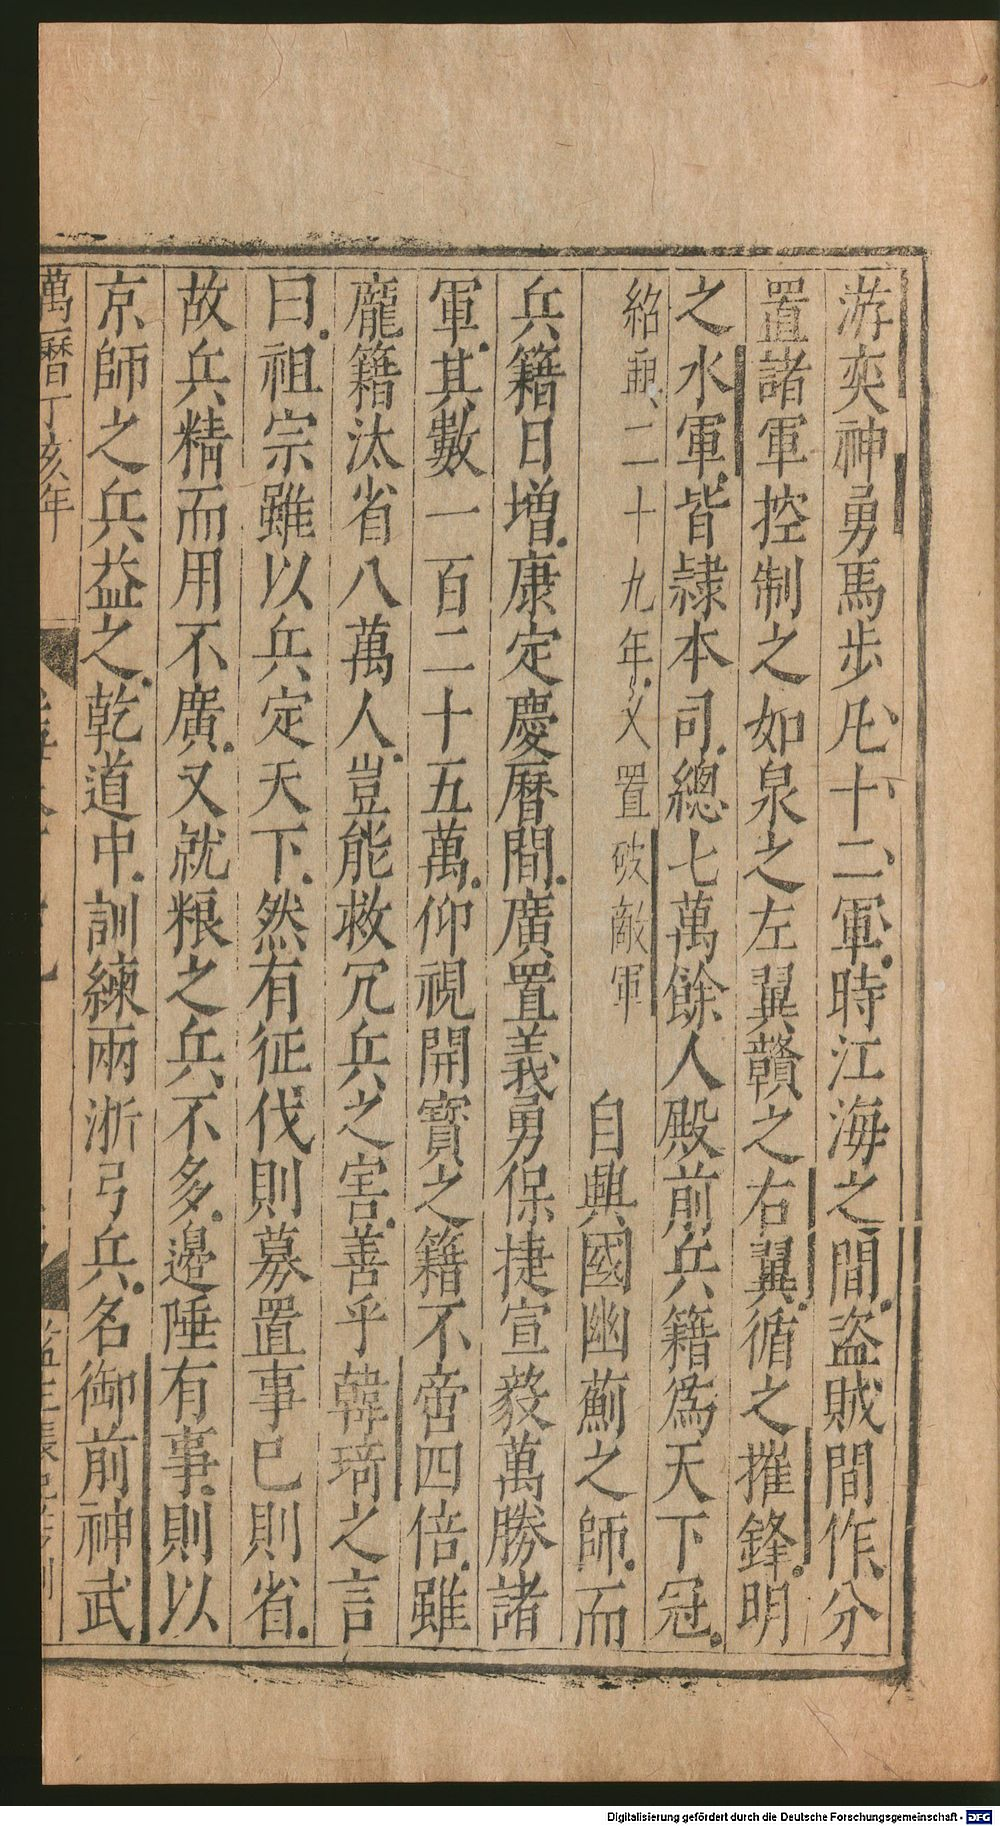 游奕神勇馬步凡十二軍時江海之間盗賊間作分
置諸軍控制之如泉之左翼贛之右翼循之摧鋒明
之水軍皆隷本司總七萬餘人殿前兵籍爲天下冠
紹興二十九年又置破敵軍
自興國幽薊之師而
兵籍日增康定慶曆間廣置義勇保捷宣毅萬勝諸
軍其數一百二十五萬仰視開寳之籍不啻四倍雖
龐籍汰省八萬人豈能救冗兵之害善乎韓琦之言
曰祖宗雖以兵定天下然有征伐則募置事已則省
故兵精而用不廣又就粮之兵不多邊陲有事則以
京師之兵益之乾道中訓練兩浙弓兵名御前神武
萬曆丁亥年
Digitalisierung gefördert durch die Deutsche Forschungsgemeinschaft - DFG